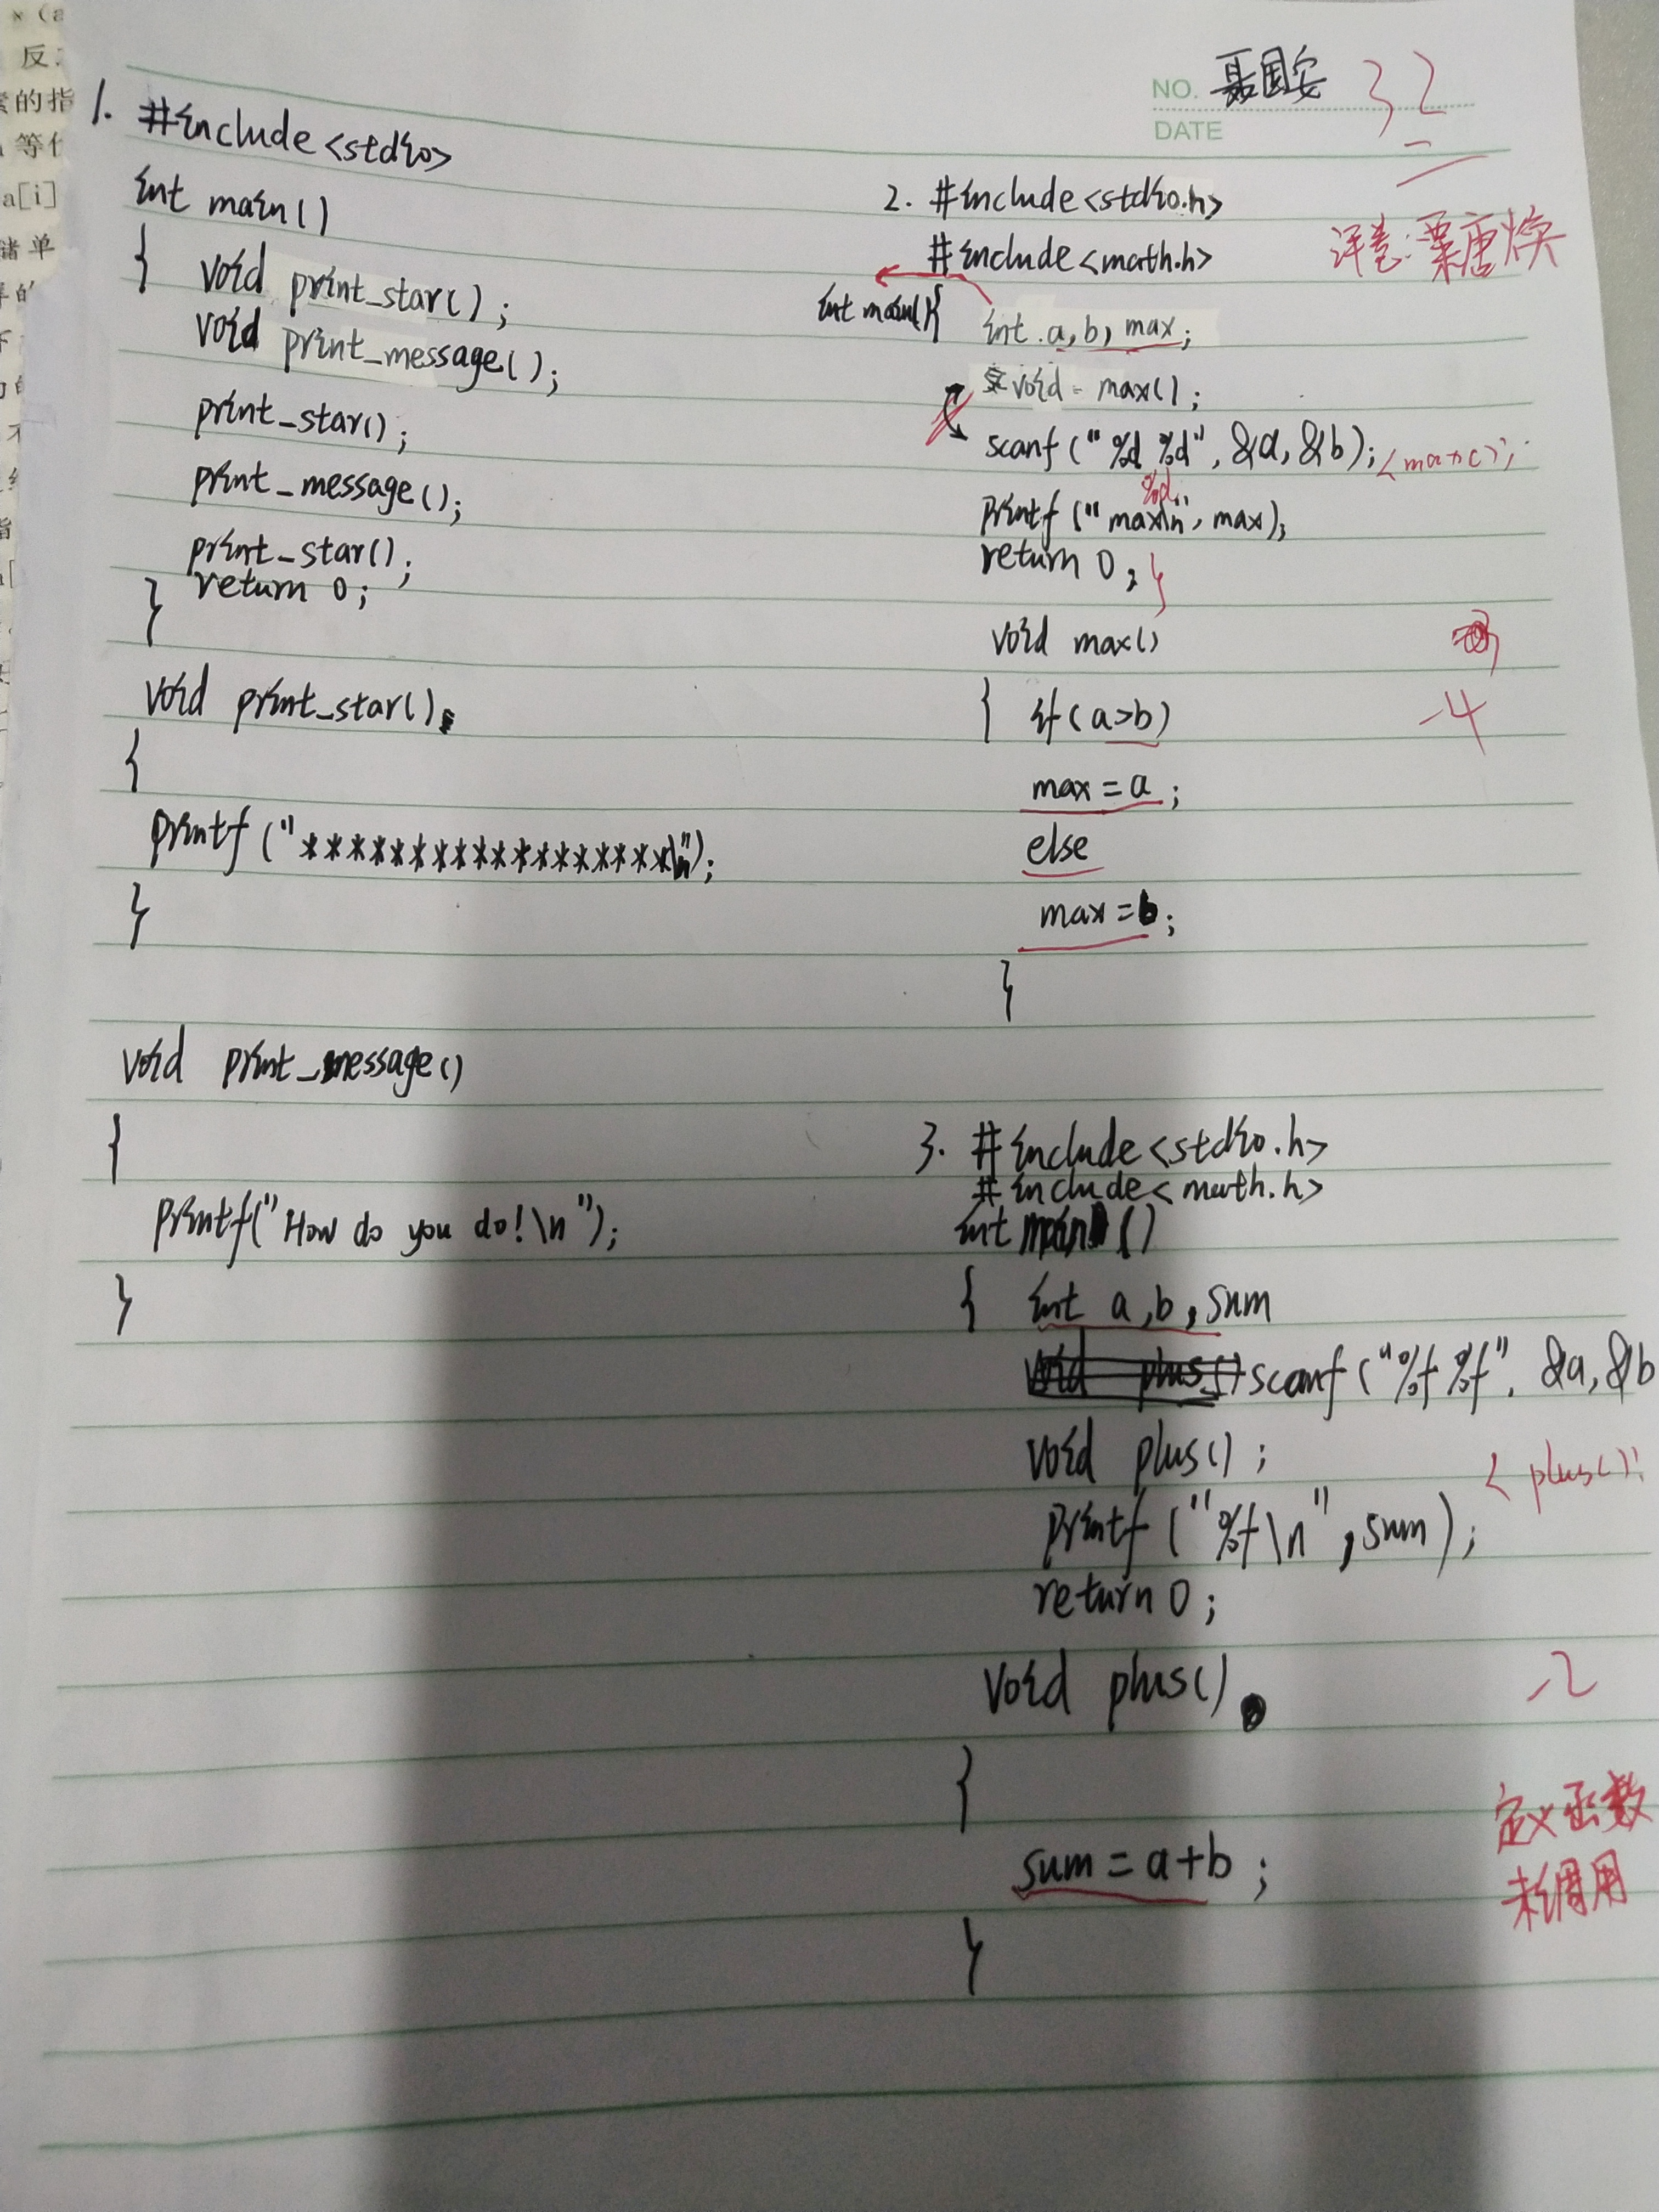 反
的指
等
a[i]
储单
NO. 聂国安 32
DATE
评卷:粟唐焕
1. #include<stdio>
int main()
{ void print_star();
void print_message();
print_star();
print_message();
print_star();
return 0;
}
void print_star()
{
printf("*****************\n");
}
void print_message()
{
printf("How do you do!\n");
}
2. #include<stdio.h>
#include<math.h>
int main(){ int a,b,max;
void max();
scanf("%d %d",&a,&b); <max();
%d
printf("max\n",max);
return 0; }
void max()
{ if(a>b)
-4
max=a;
else
max=b;
}
3. #include<stdio.h>
#include<math.h>
int main()
{ int a,b,sum
scanf("%f %f", &a,&b
void plus();
< plus();
printf("%f\n",sum);
return 0;
void plus()
-2
{
sum=a+b;
}
定义函数
未调用